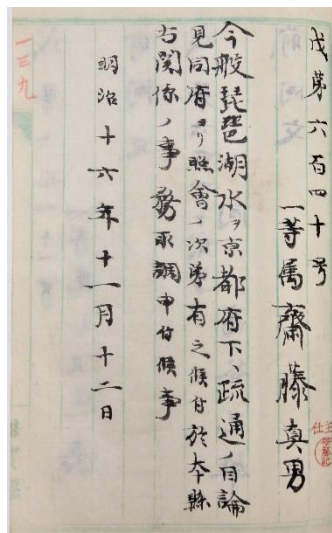 戊第六百四十号
一等属齋藤真男
今般琵琶湖水ヲ京都府下ヘ疏通ノ目論
見同府ヨリ照會ノ次第有之候付於本縣
右関係ノ事務取調申付候事
明治十六年十一月十二日
一三九